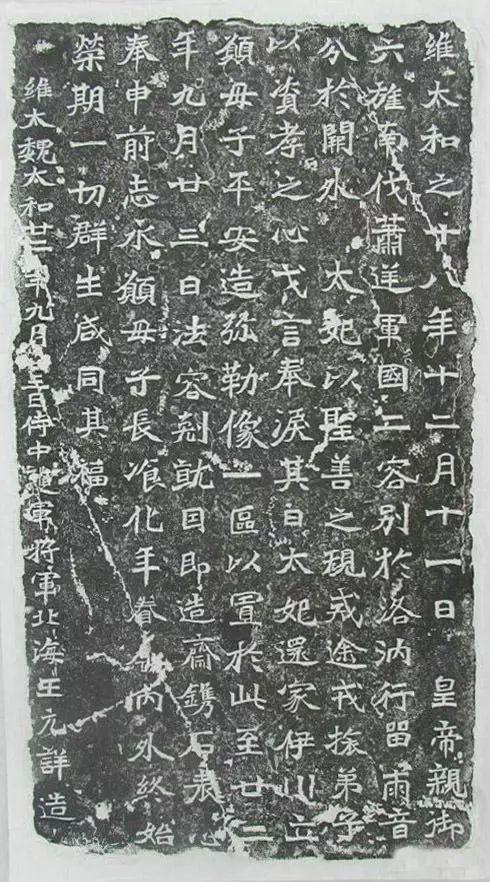 維太和之十八年十二月十一日 皇帝親御
六旌南伐蕭逆軍國二容別於洛汭行留兩音
分於闕外 太妃以聖善之規戒途戒旅弟子
以資孝之心戈言奉淚其日太妃還家伊川立
願母子平安造弥勒像一區以置於此至廿二
年九月廿三日法容剋就因即造齋鐫石表心
奉申前志永願母子長飡化年眷屬內外終始
榮期一切群生咸同其福
維大魏太和廿二年九月廿三日侍中護軍將軍北海王元詳造